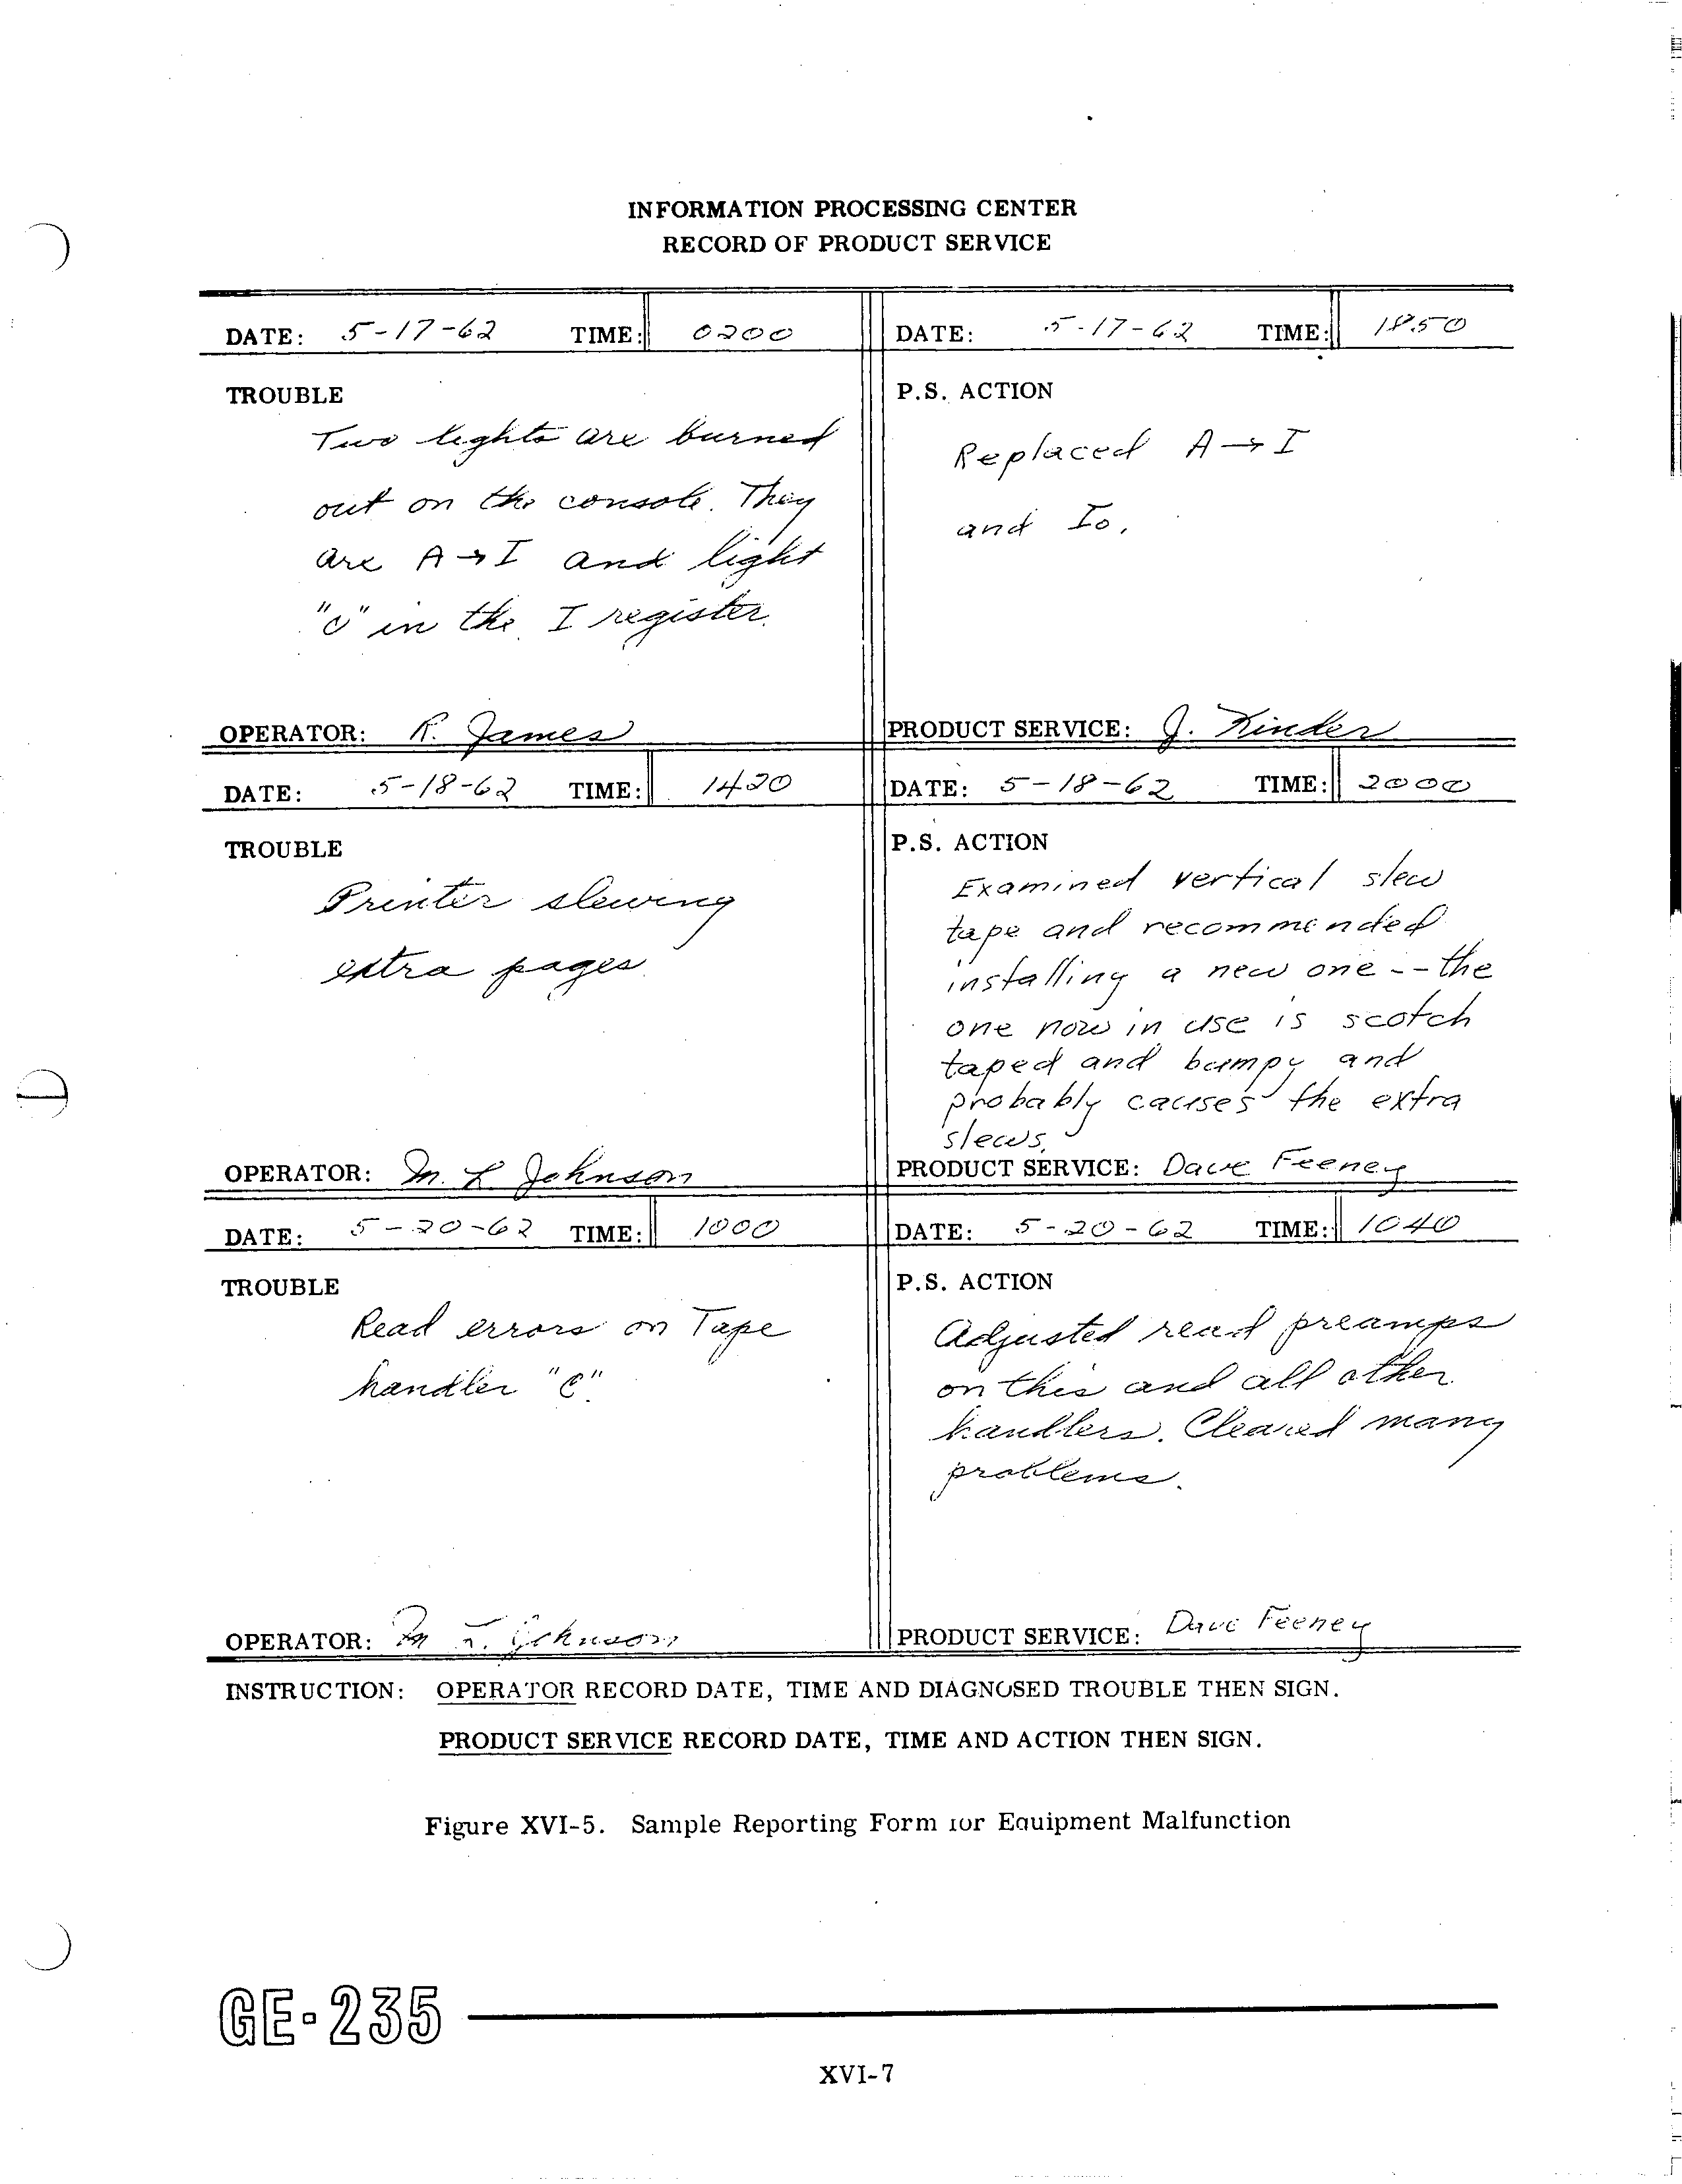 INFORMATION PROCESSING CENTER
RECORD OF PRODUCT SERVICE
DATE: 5-17-62 TIME: 0200
TROUBLE
Two lights are burned
out on the console. They
are A→I and light
"0" in the I register.
OPERATOR: R. James
DATE: 5-17-62 TIME: 1850
P.S. ACTION
Replaced A→I
and Io.
PRODUCT SERVICE: J. Kinder
DATE: 5-18-62 TIME: 1420
TROUBLE
Printer slewing
extra pages
OPERATOR: M. L Johnson
DATE: 5-18-62 TIME: 2000
P.S. ACTION
Examined vertical slew
tape and recommended
installing a new one -- the
one now in use is scotch
taped and bumpy and
probably causes the extra
slews.
PRODUCT SERVICE: Dave Feeney
DATE: 5-20-62 TIME: 1000
TROUBLE
Read errors on Tape
handler "C".
OPERATOR: M L. Johnson
DATE: 5-20-62 TIME: 1040
P.S. ACTION
Adjusted read preamps
on this and all other
handlers. Cleared many
problems.
PRODUCT SERVICE: Dave Feeney
INSTRUCTION: OPERATOR RECORD DATE, TIME AND DIAGNOSED TROUBLE THEN SIGN.
PRODUCT SERVICE RECORD DATE, TIME AND ACTION THEN SIGN.
Figure XVI-5. Sample Reporting Form for Equipment Malfunction
GE-235
XVI-7